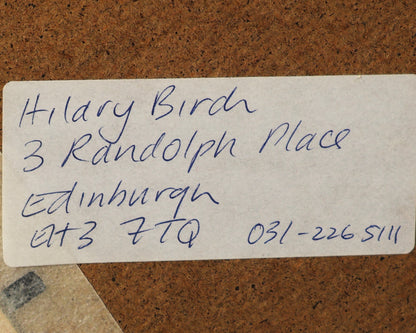 Hilary Birch
3 Randolph Place
Edinburgh
EH3 7TQ 031-226 5111